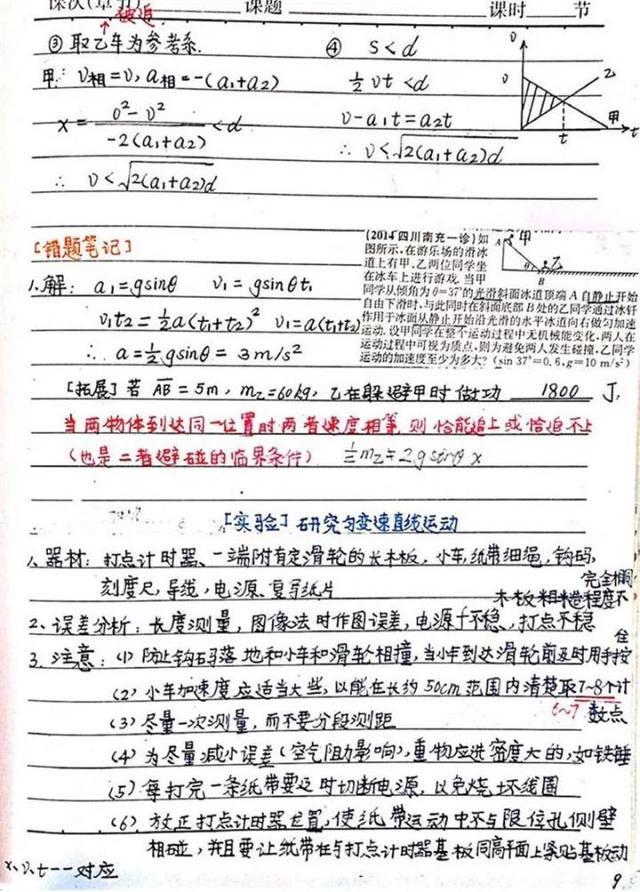 课次(章节) 课题 课时 节
被追
③ 取乙车为参考系. ④ S<d
甲: υ相=υ, a相=-(a₁+a₂) ½υt<d
x=(0²-υ²)/(-2(a₁+a₂))<d υ-a₁t=a₂t
∴ υ<√(2(a₁+a₂)d) ∴ υ<√(2(a₁+a₂)d)
υ
υ
乙
甲
t
t
[错题笔记]
1.解: a₁=gsinθ υ₁=gsinθt₁
υ₁t₂=½a(t₁+t₂)² υ₁=a(t₁+t₂)
∴ a=½gsinθ=3m/s²
(2014四川南充一诊)如
图所示,在游乐场的滑冰
道上有甲、乙两位同学坐
在冰车上进行游戏.当甲
同学从倾角为θ=37°的光滑斜面冰道顶端A自静止开始
自由下滑时,与此同时在斜面底部B处的乙同学通过冰钎
作用于冰面从静止开始沿光滑的水平冰道向右做匀加速
运动.设甲同学在整个运动过程中无机械能变化,两人在
运动过程中可视为质点,则为避免两人发生碰撞,乙同学
运动的加速度至少为多大?(sin 37°=0.6,g=10 m/s²)
A 甲
乙
θ
B
[拓展]若 AB=5m, m乙=60kg, 乙在躲避甲时做功 1800 J.
当两物体到达同一位置时两者速度相等,则恰能追上或恰追不上
(也是二者避碰的临界条件) ½m乙·2gsinθx
[实验]研究匀变速直线运动
1、器材: 打点计时器、一端附有定滑轮的长木板, 小车, 纸带细绳, 钩码,
刻度尺, 导线, 电源、复写纸片
完全相同
木板粗糙程度不
2、误差分析: 长度测量, 图像法时作图误差, 电源f不稳, 打点不稳
3. 注意: (1) 防止钩码落地和小车和滑轮相撞, 当小车到达滑轮前及时用手按住
(2) 小车加速度应适当大些, 以能在长约50cm范围内清楚取7~8个计
6~7 数点
(3) 尽量一次测量, 而不要分段测距
(4) 为尽量减小误差(空气阻力影响), 重物应选密度大的, 如铁锤
(5) 每打完一条纸带要及时切断电源, 以免烧坏线圈
(6) 放正打点计时器位置, 使纸带运动中不与限位孔侧壁
相碰, 并且要让纸带在与打点计时器基板同高平面上紧贴基板动
x、υ、t一一对应
9